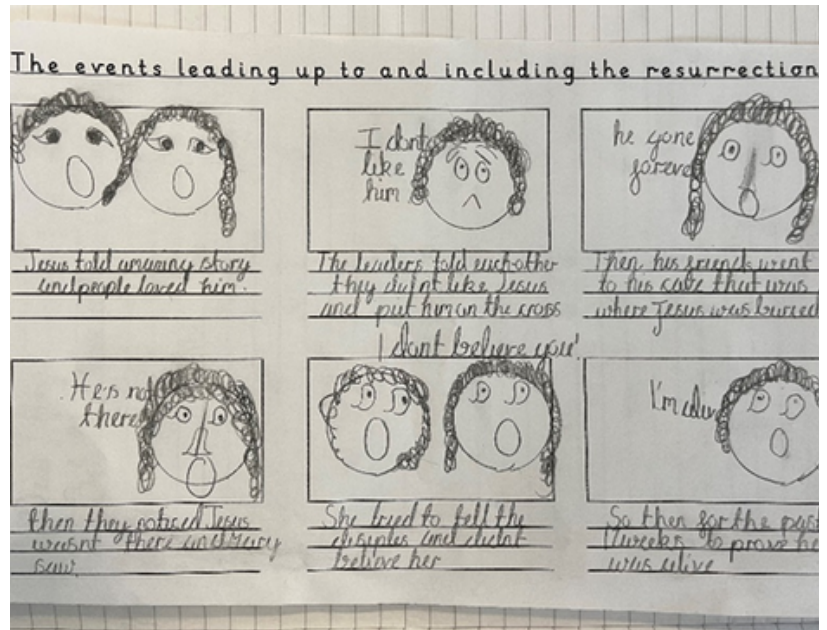 The events leading up to and including the resurrection
I dont
like
him
he gone
foreve
Jesus told amazing story
and people loved him.
The leaders told each other
they didn't like Jesus
and put him on the cross
Then his friends went
to his cave that was
where Jesus was buried
He's not
there
I dont believe you!
I'm
then they noticed Jesus
wasnt there and Mary
saw.
She tried to tell the
disiples and didnt
belive her
So then for the past
weeks to prove he
was alive